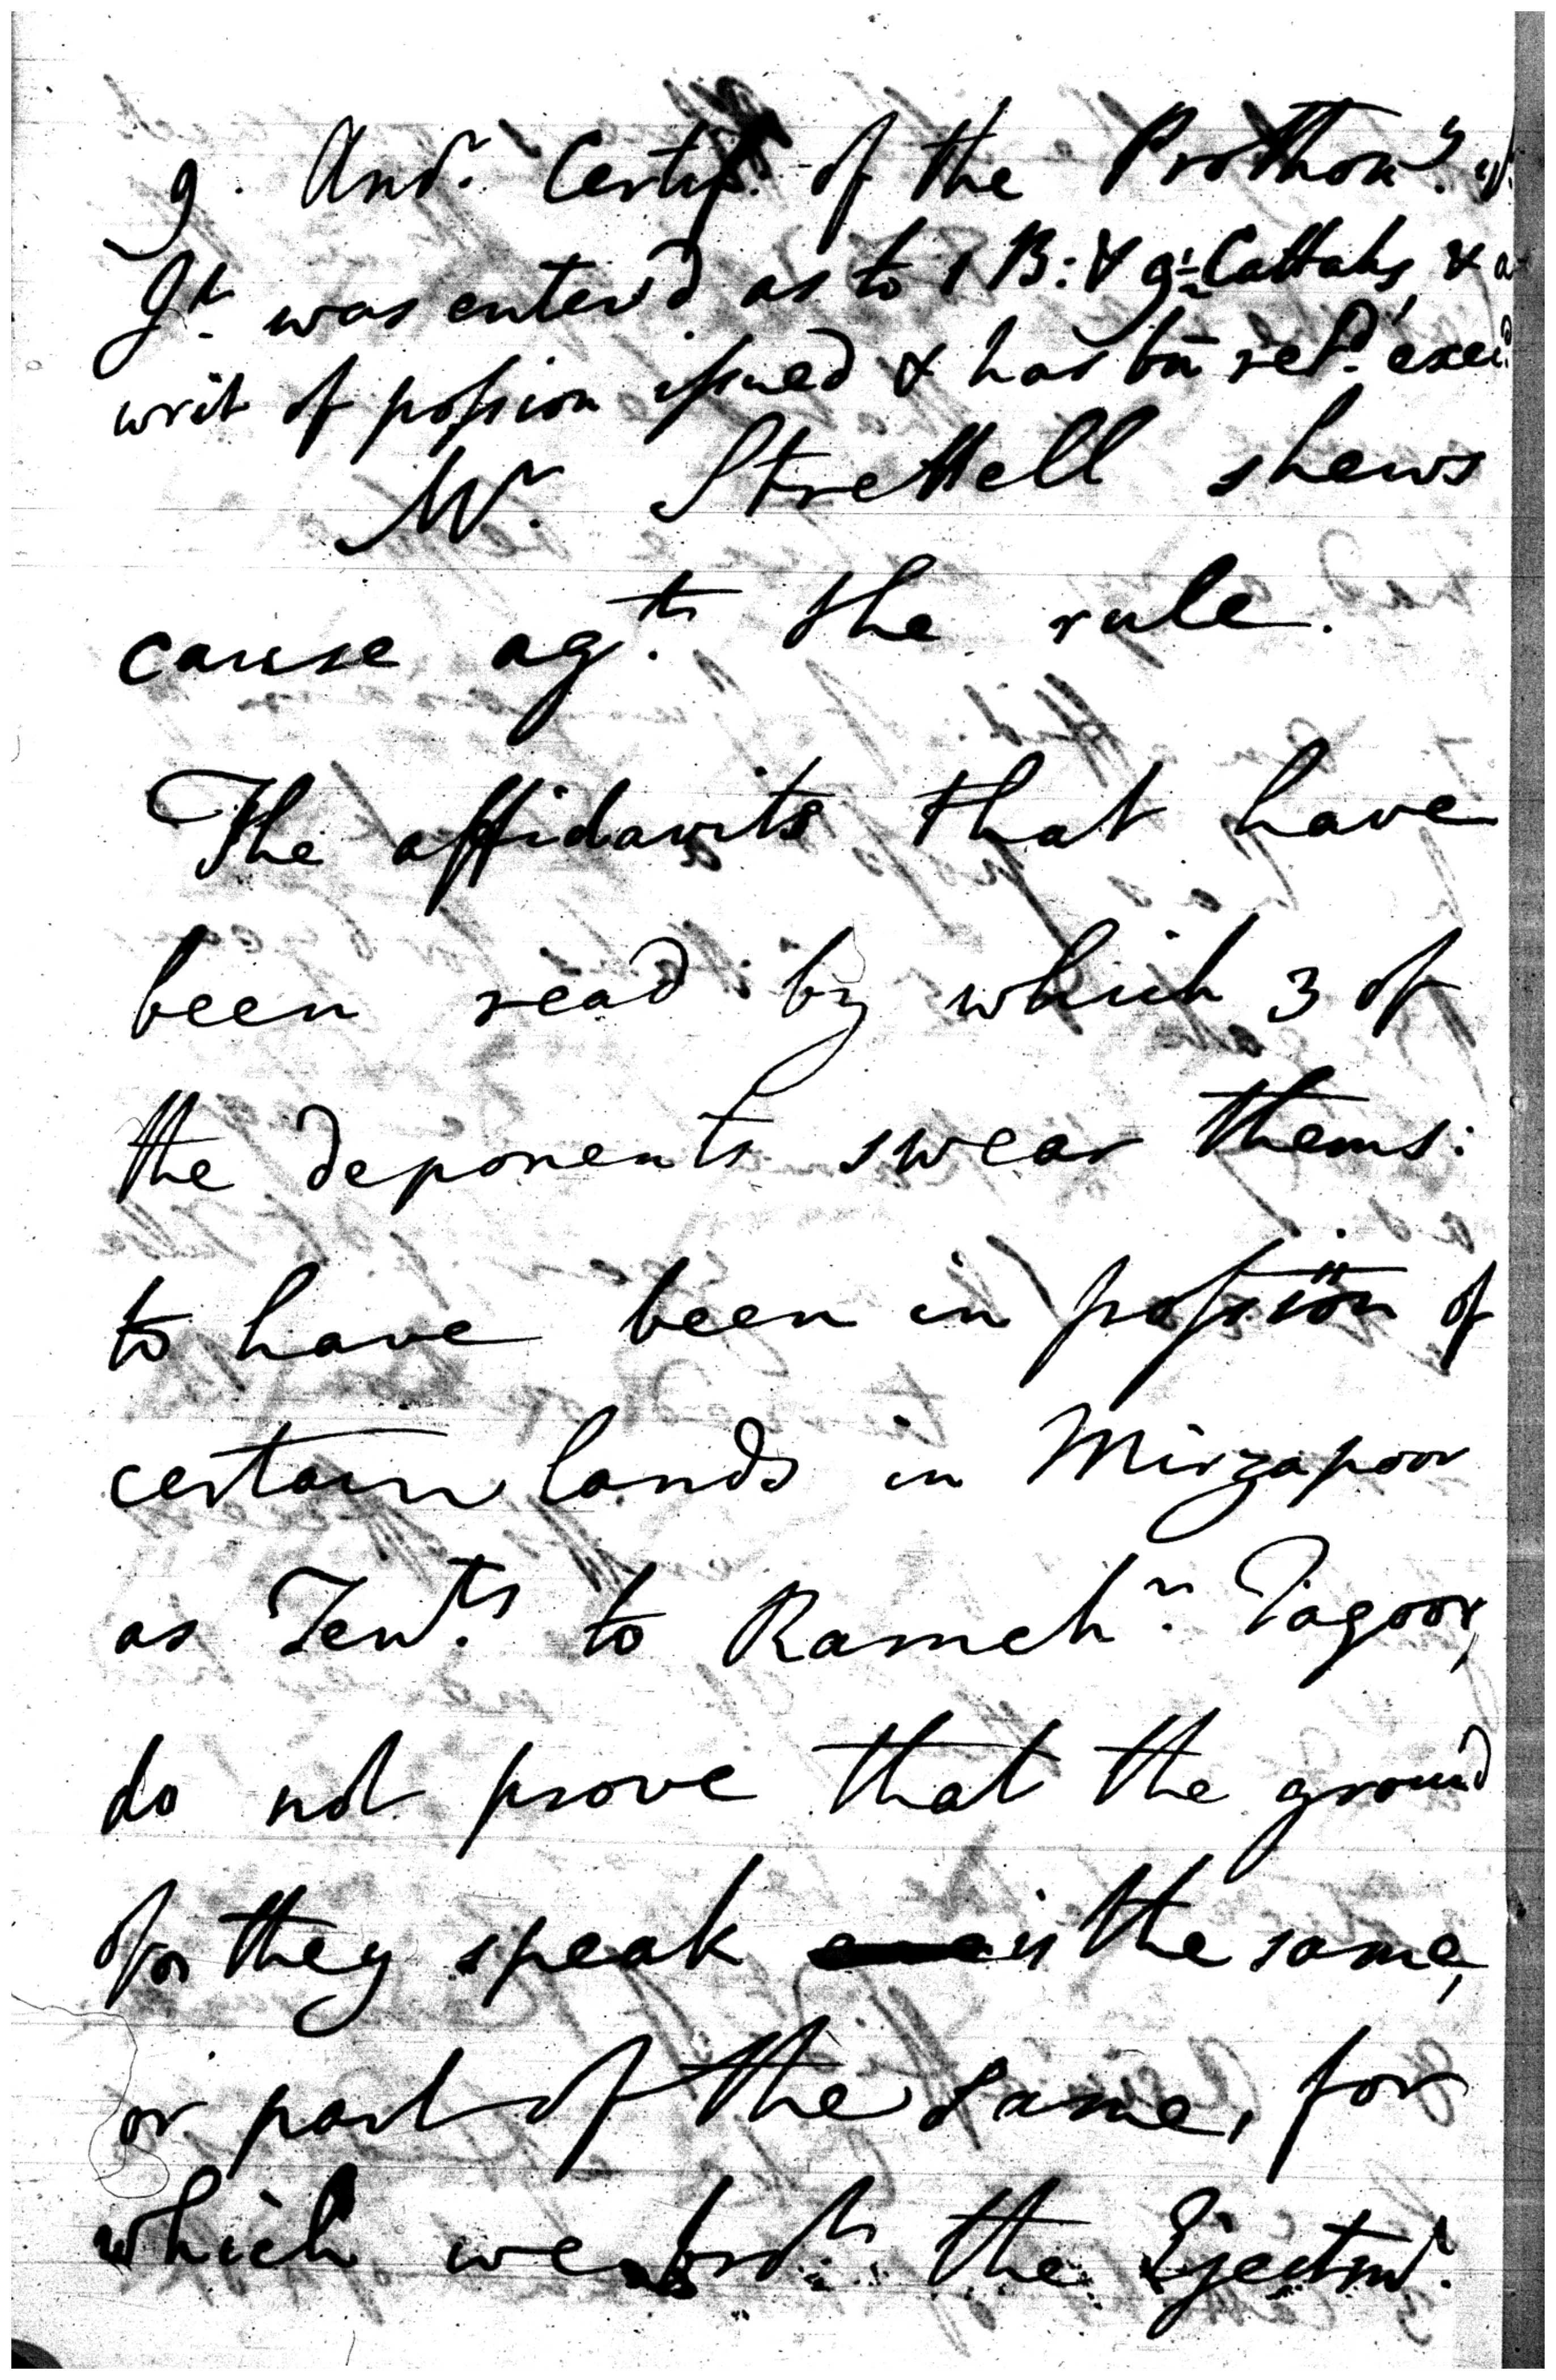 9. And. Certif. of the Prothony. yt.
Jt. was enter'd as to 1 B: & 9 Cattahs, & a
writ of possion issued & has bn retd. execd.
Mr. Strettell shews
cause agt. the rule.
The affidavits that have
been read by which 3 of
the deponents swear thems:
to have been in possion of
certain lands in Mirzapoor
as Tents. to Ramchn. Tagoor,
do not prove that the ground
of they speak is the same,
or part of the same, for
which we brot. the Ejectmt.